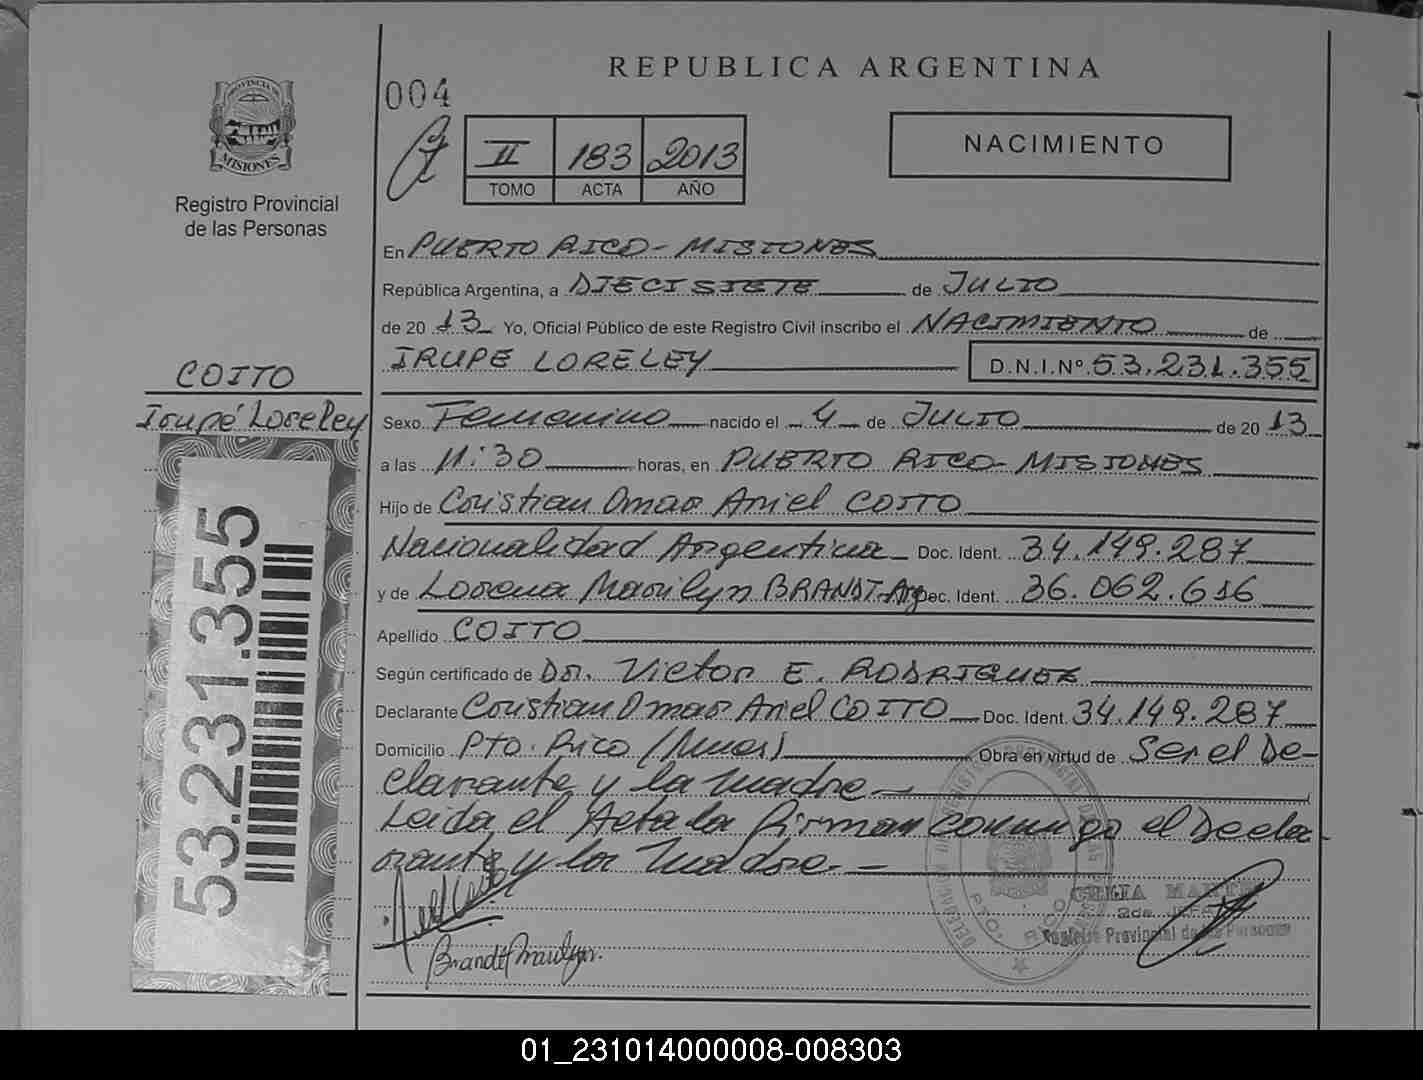 REPUBLICA ARGENTINA
004
II 183 2013
TOMO ACTA AÑO
NACIMIENTO
PROVINCIA DE MISIONES
Registro Provincial
de las Personas
En PUERTO RICO - MISIONES
República Argentina, a DIECISIETE de JULIO
de 20 13 Yo, Oficial Público de este Registro Civil inscribo el NACIMIENTO de
IRUPE LORELEY D.N.I.Nº 53.231.355
COITO
Irupé Loreley
53.231.355
Sexo Femenino nacido el 4 de JULIO de 20 13
a las 11:30 horas, en PUERTO RICO - MISIONES
Hijo de Cristian Omar Ariel COITO
Nacionalidad Argentina Doc. Ident. 34.149.287
y de Lorena Marilyn BRANDT - Arg Doc. Ident. 36.062.616
Apellido COITO
Según certificado de Dr. Victor E. RODRIGUEZ
Declarante Cristian Omar Ariel COITO Doc. Ident. 34.149.287
Domicilio Pto. Rico (Mnes) Obra en virtud de Ser el De-
clarante y la madre
Leida el Acta la firman conmigo el Decla
rante y la madre
Brandt
CELIA
2da JEFA
Registro Provincial de las Personas
PTO. RICO
01_231014000008-008303